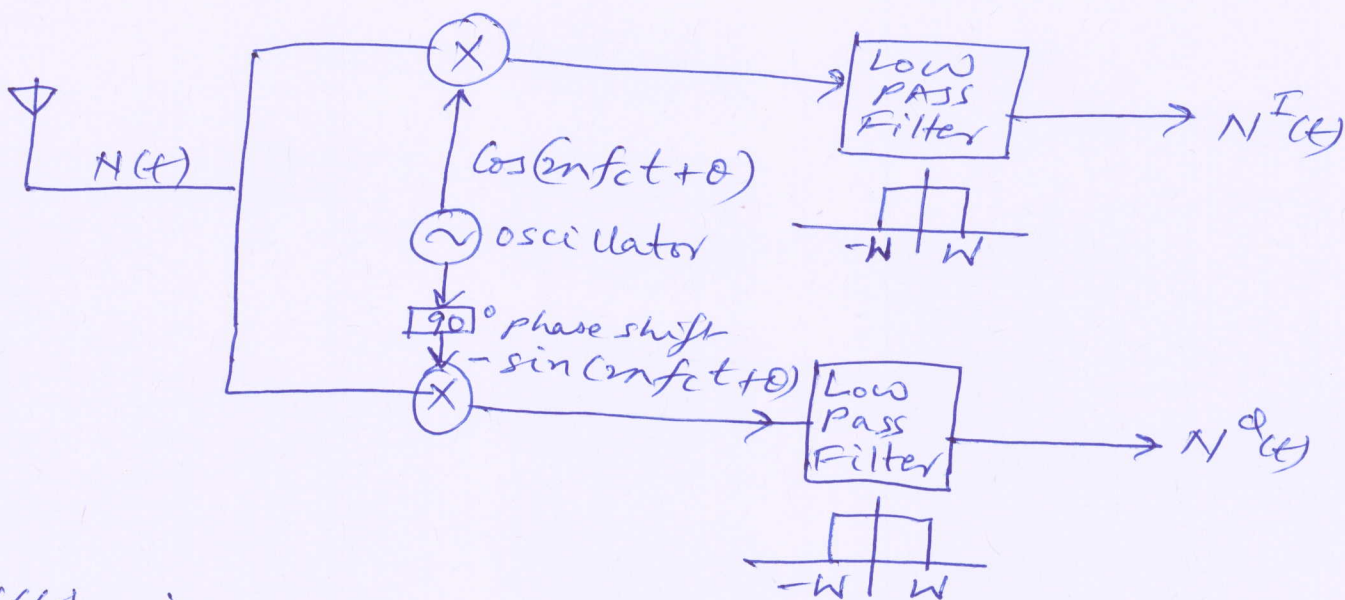 N(t)
Cos(2πfct+θ)
oscillator
90° phase shift
-sin(2πfct+θ)
Low
PASS
Filter
-W W
N^I(t)
Low
Pass
Filter
-W W
N^Q(t)